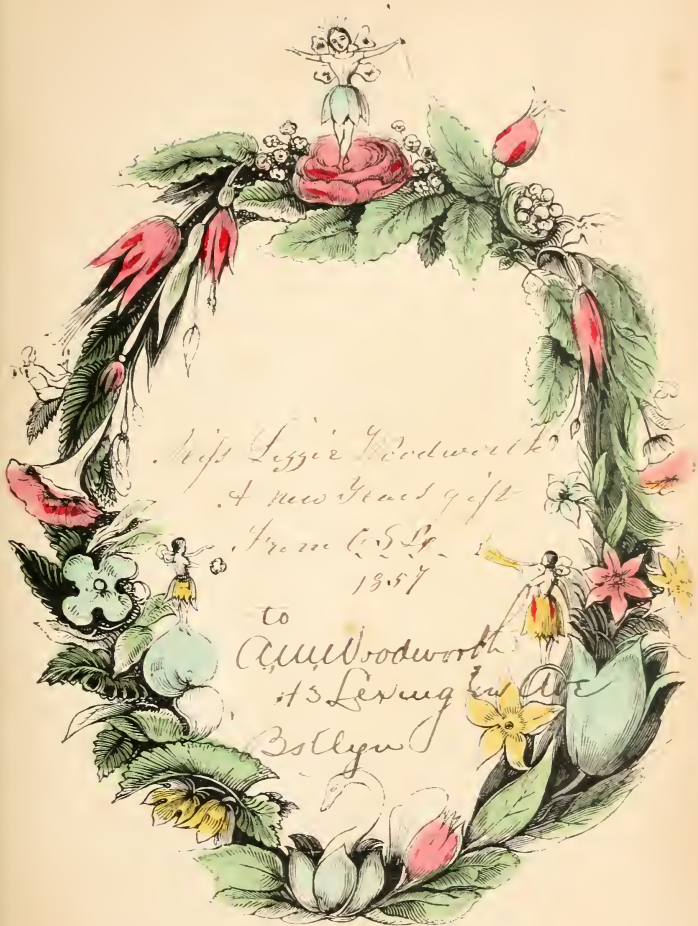 Miss Lizzie Woodworth
A new Years gift
From
1857
to
Woodworth
Lexington Ave